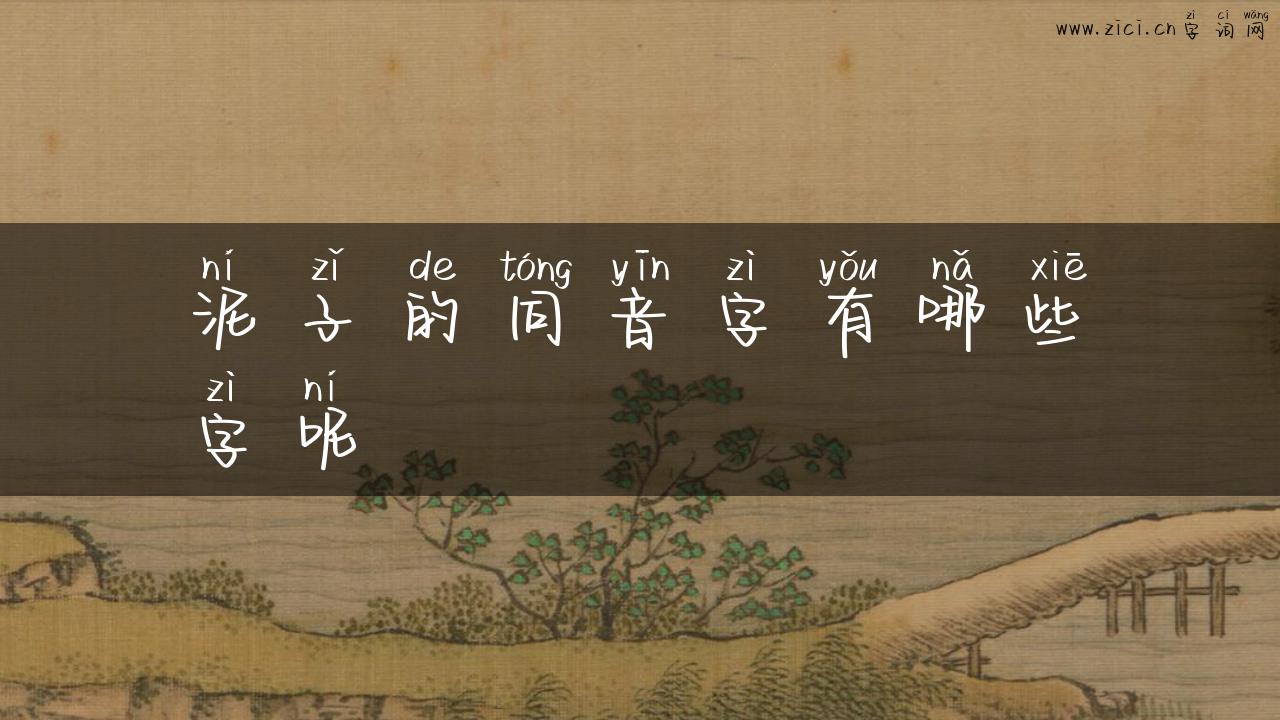 zì cí wǎng
www.zici.cn字词网
ní zǐ de tóng yīn zì yǒu nǎ xiē
泥子的同音字有哪些
zì ní
字呢